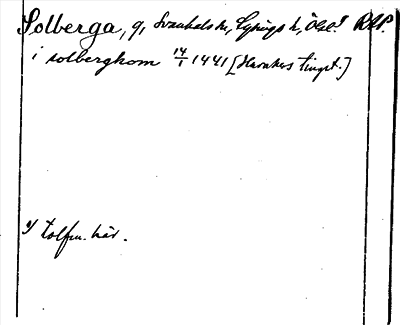 Solberga, g, Svanhals sn, Lysings h, Ögl. 1) RAP.
i solberghom 14/1 1441 [Harækers tingst.]
1) Tolfm. här.